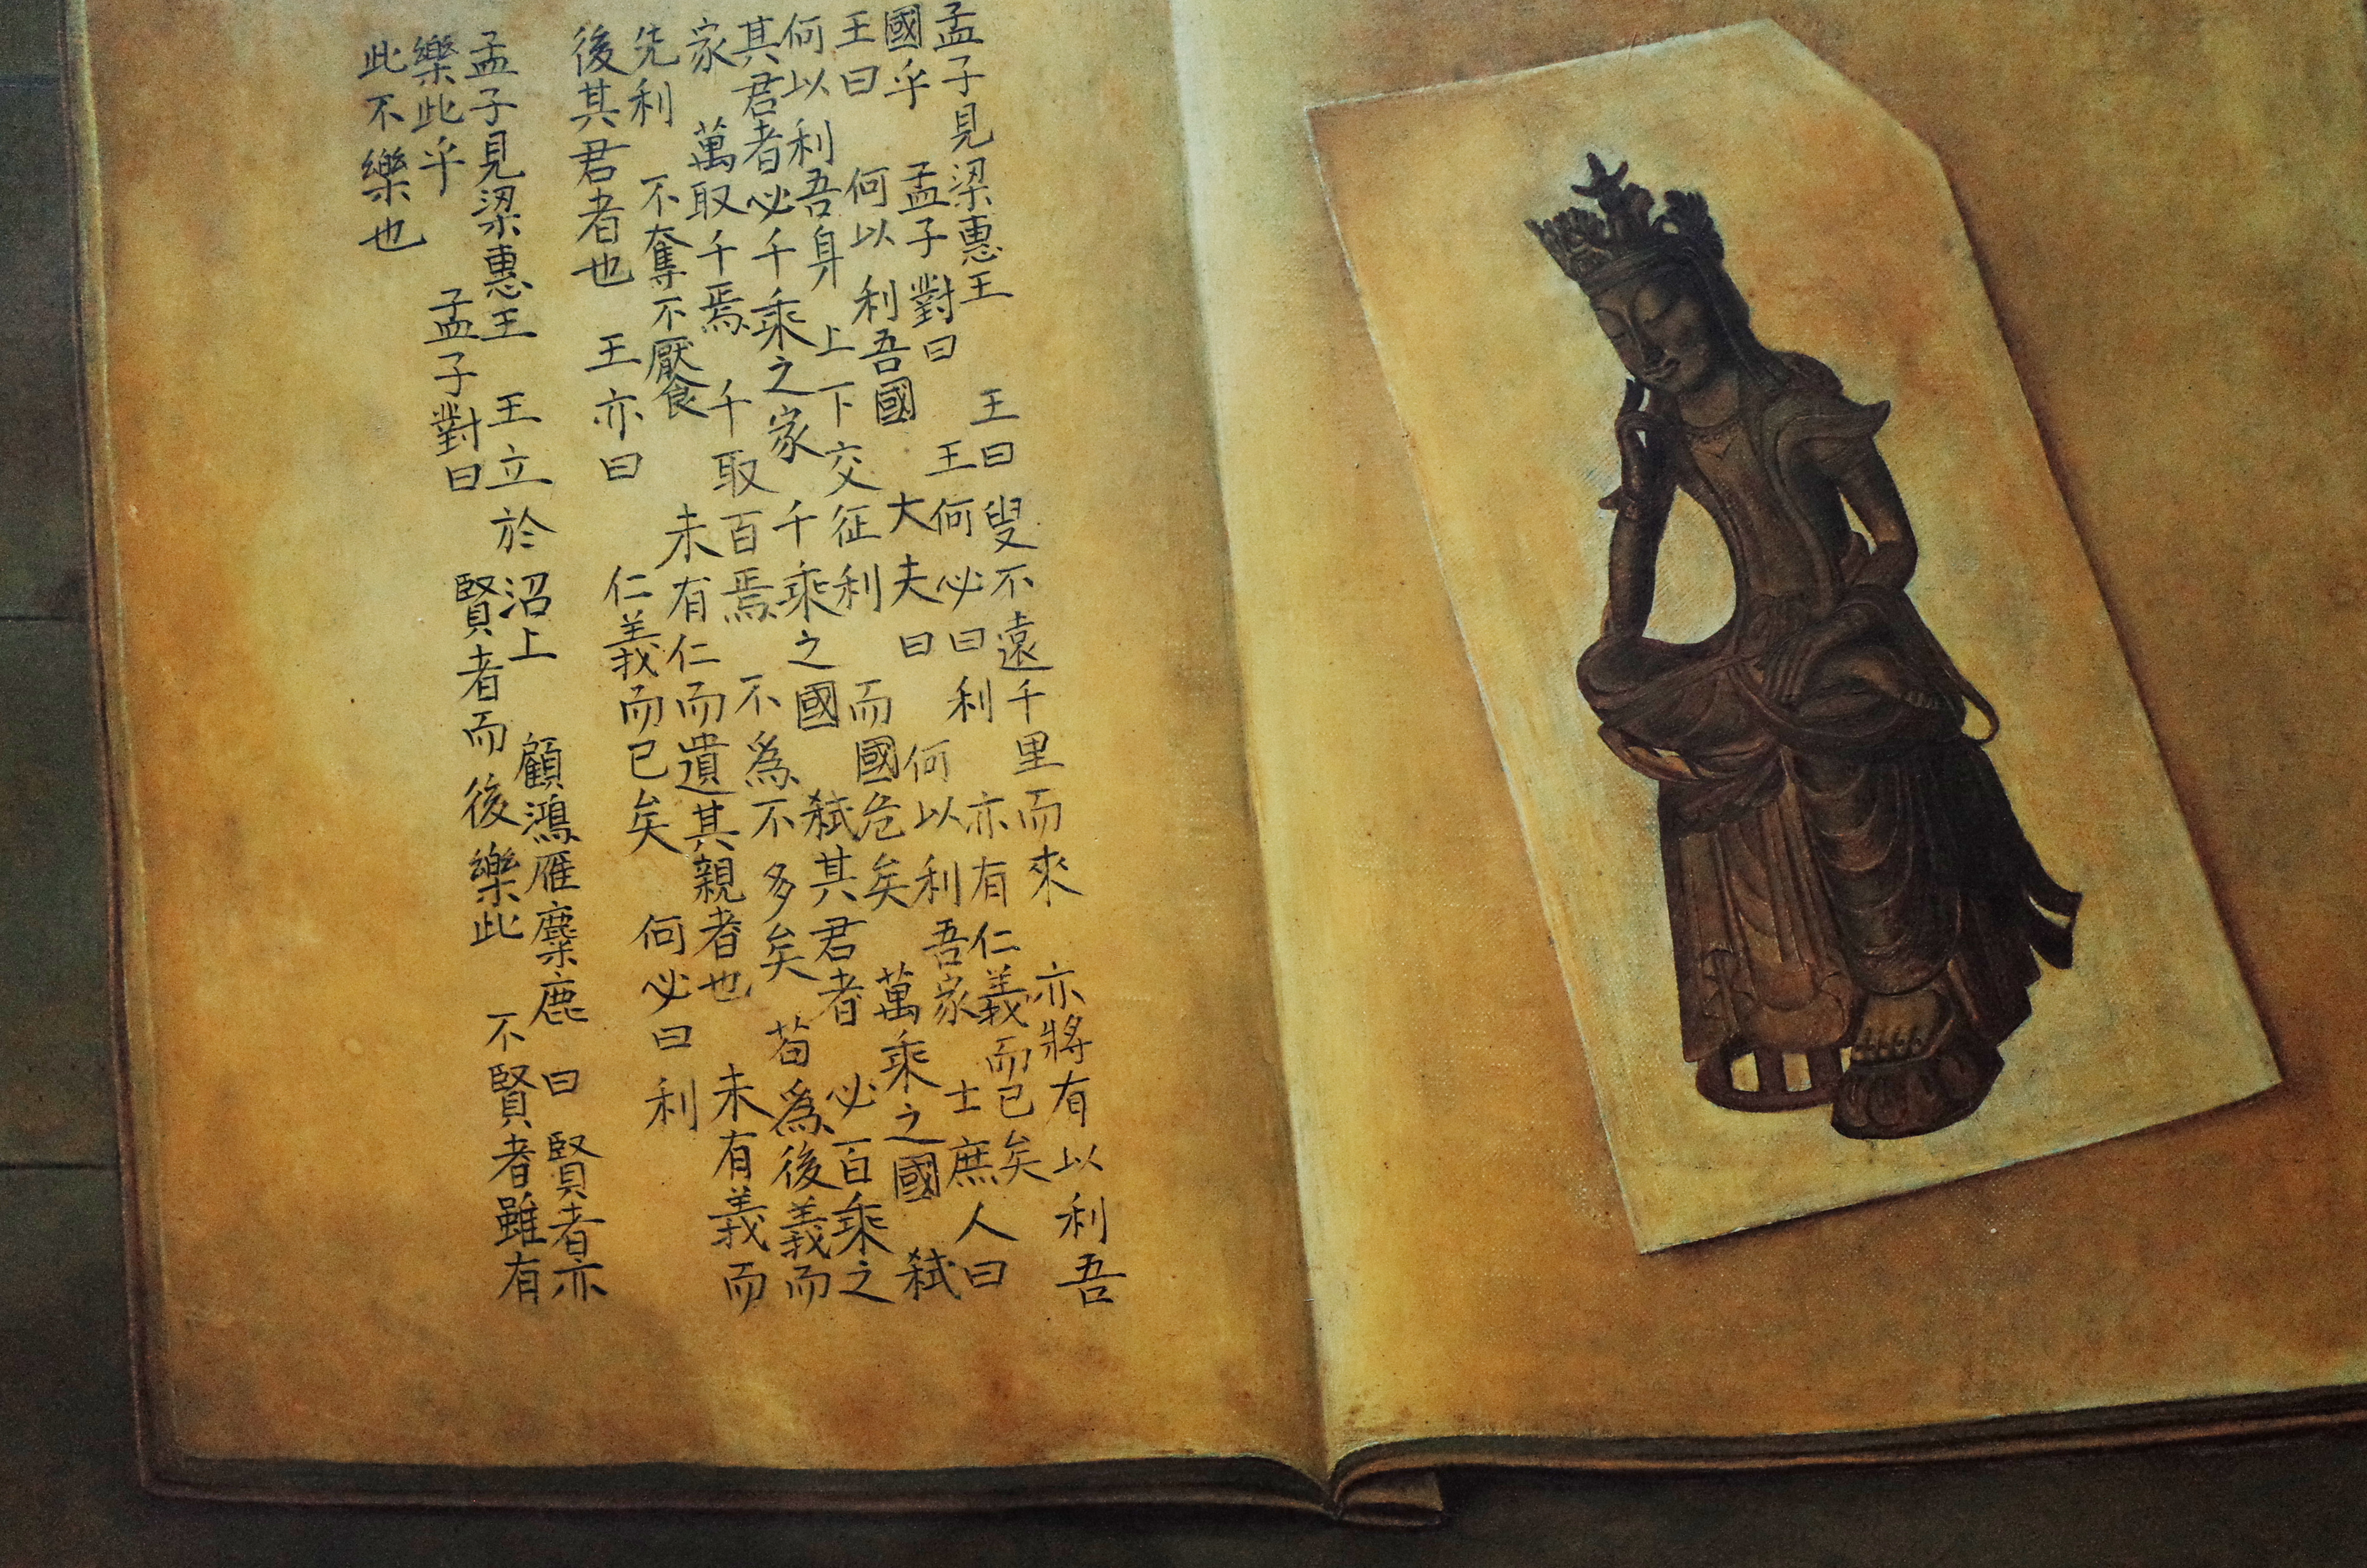 孟子見梁惠王 王曰 叟不遠千里而來 亦將有以利吾
國乎 孟子對曰 王何必曰利 亦有仁義而已矣
王曰 何以利吾國 大夫曰 何以利吾家 士庶人曰
何以利吾身 上下交征利 而國危矣 萬乘之國 弑
其君者必千乘之家 千乘之國 弑其君者 必百乘之
家 萬取千焉 千取百焉 不爲不多矣 苟爲後義而
先利 不奪不饜 未有仁而遺其親者也 未有義而
後其君者也 王亦曰 仁義而已矣 何必曰利
孟子見梁惠王 王立於沼上 顧鴻雁麋鹿 曰 賢者亦
樂此乎 孟子對曰 賢者而後樂此 不賢者雖有
此不樂也